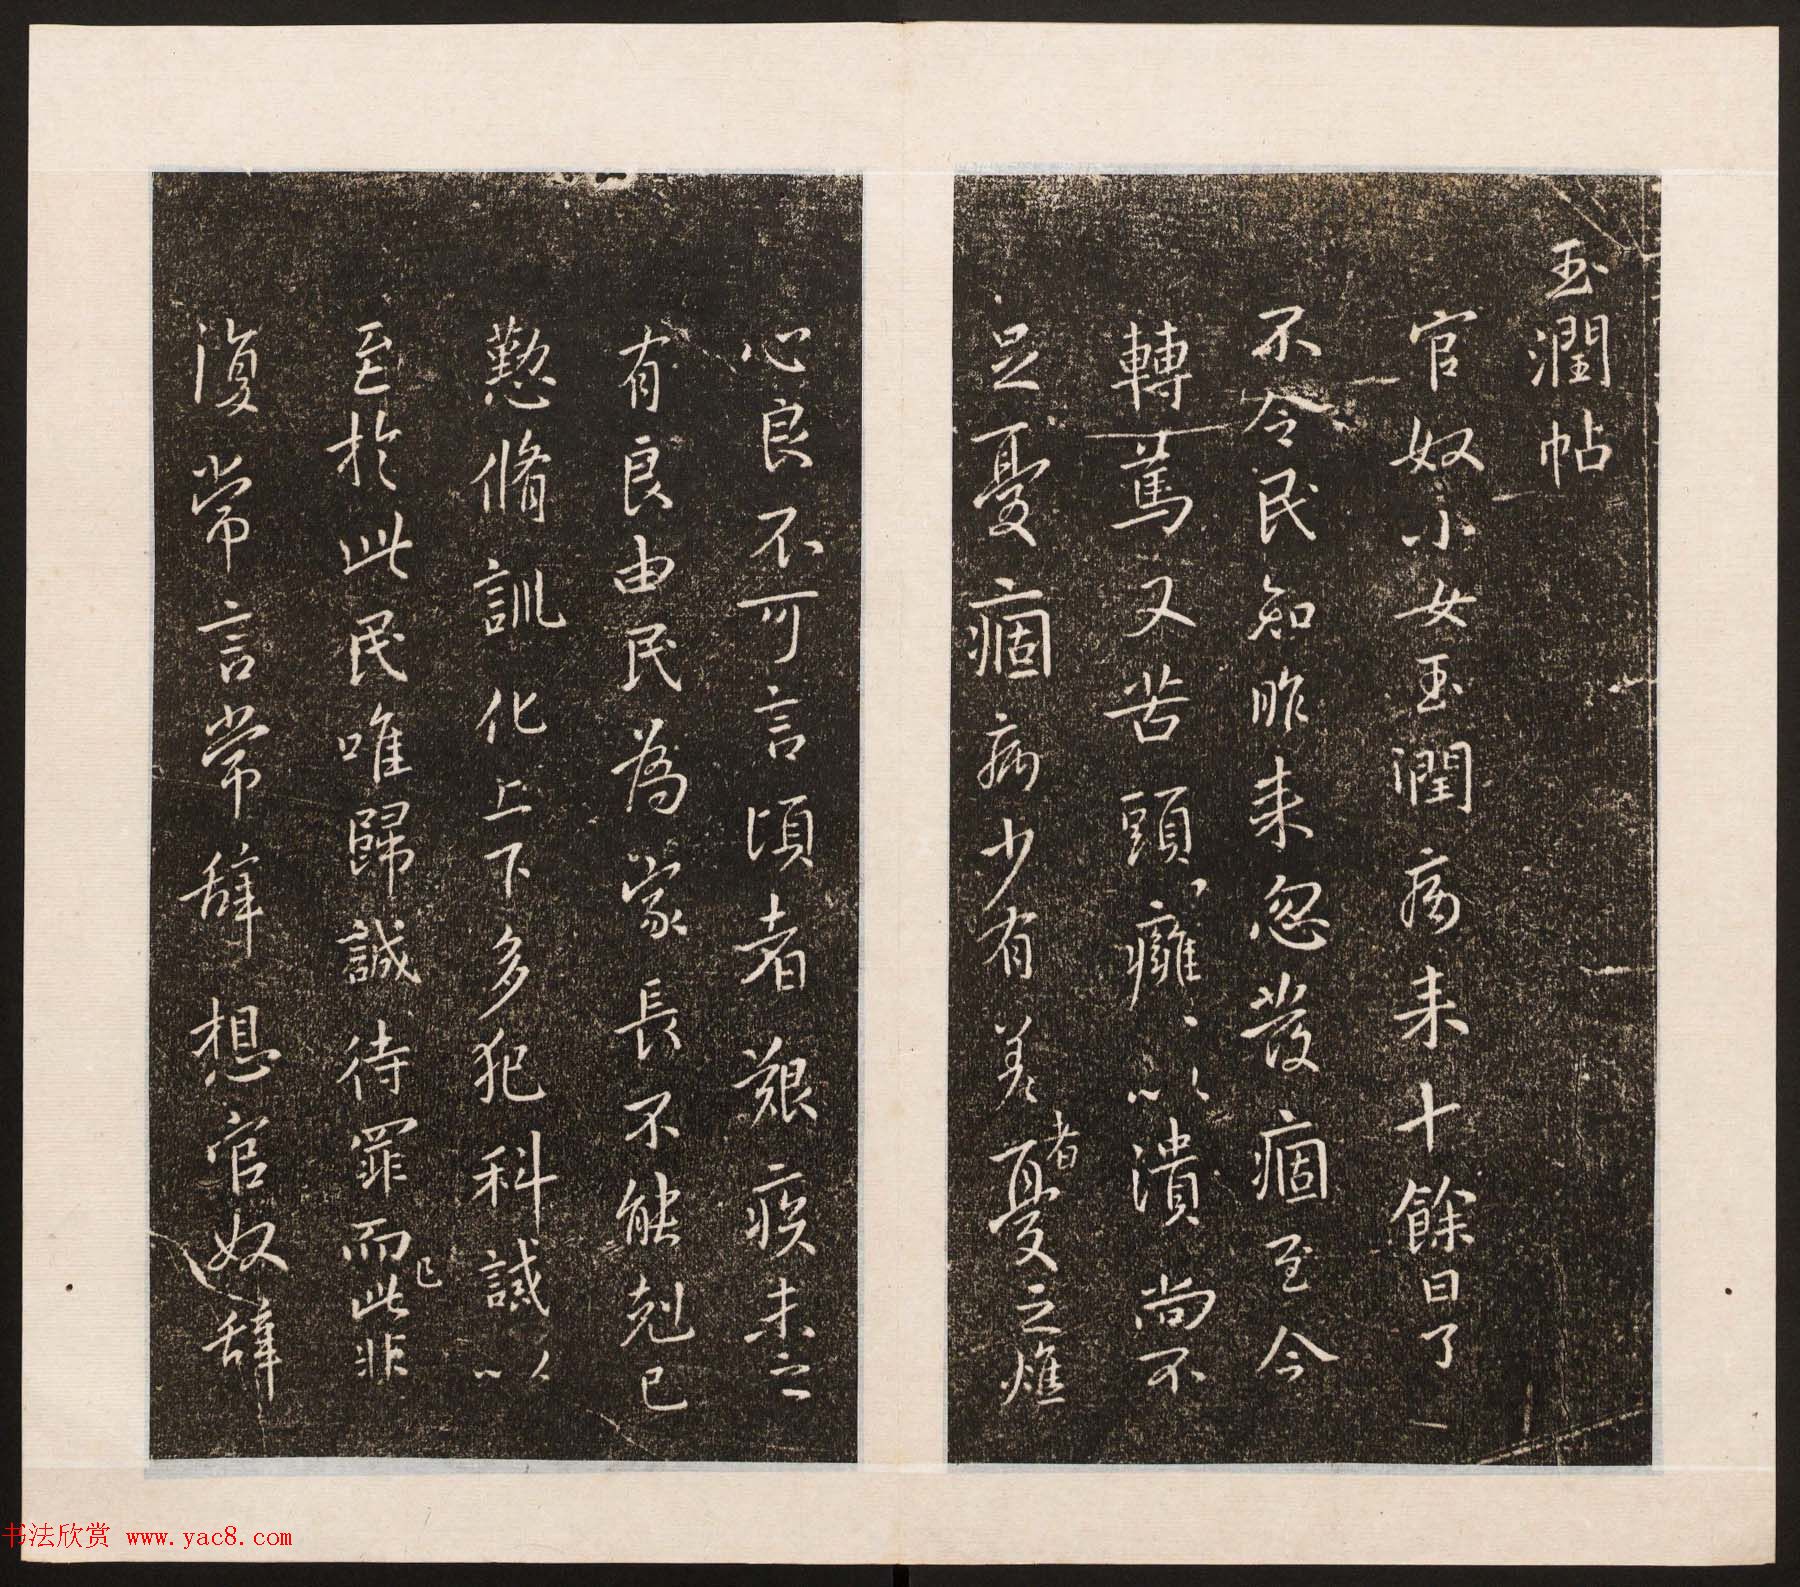 玉潤帖
官奴小女玉潤病来十餘日了
不令民知昨来忽發痼至今
轉篤又苦頭癰癰以潰尚不
足憂痼病少有差者憂之燋
心良不可言頃者艱疾未之
有良由民為家長不能剋己
懃脩訓化上下多犯科誡以
至於此民唯歸誠待罪而已此非
復常言常辭想官奴辭
书法欣赏 www.yac8.com